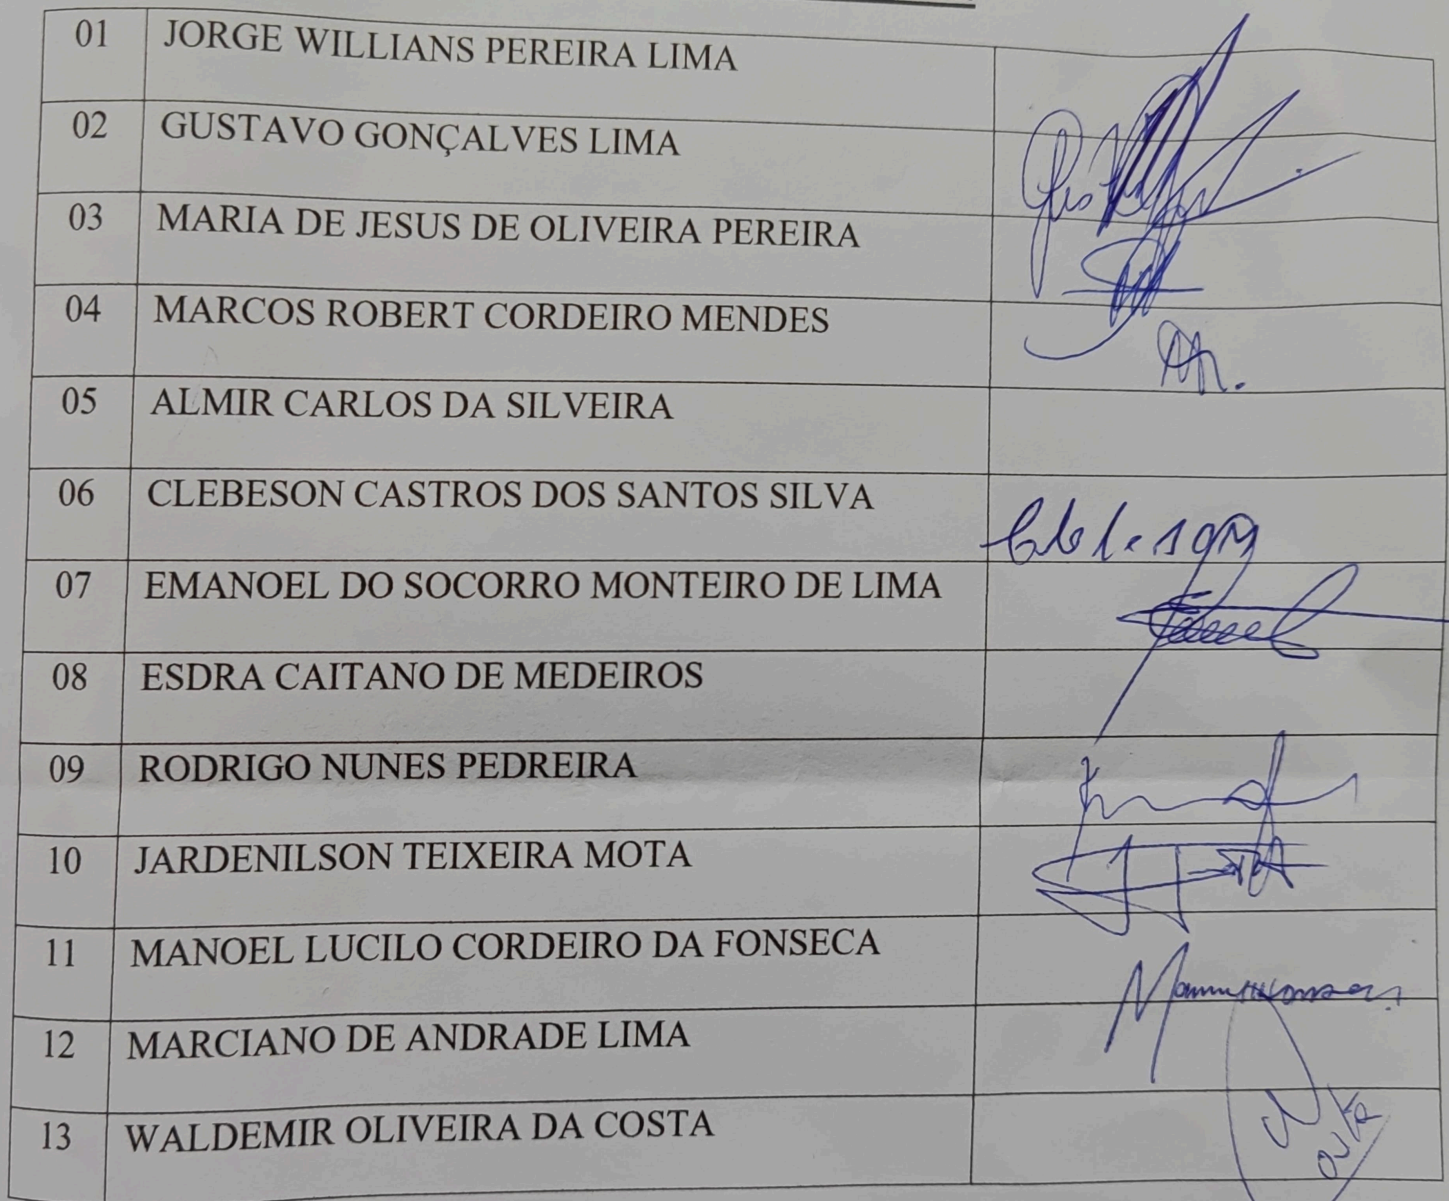 01 JORGE WILLIANS PEREIRA LIMA
02 GUSTAVO GONÇALVES LIMA
03 MARIA DE JESUS DE OLIVEIRA PEREIRA
04 MARCOS ROBERT CORDEIRO MENDES
05 ALMIR CARLOS DA SILVEIRA
06 CLEBESON CASTROS DOS SANTOS SILVA
07 EMANOEL DO SOCORRO MONTEIRO DE LIMA
08 ESDRA CAITANO DE MEDEIROS
09 RODRIGO NUNES PEDREIRA
10 JARDENILSON TEIXEIRA MOTA
11 MANOEL LUCILO CORDEIRO DA FONSECA
12 MARCIANO DE ANDRADE LIMA
13 WALDEMIR OLIVEIRA DA COSTA